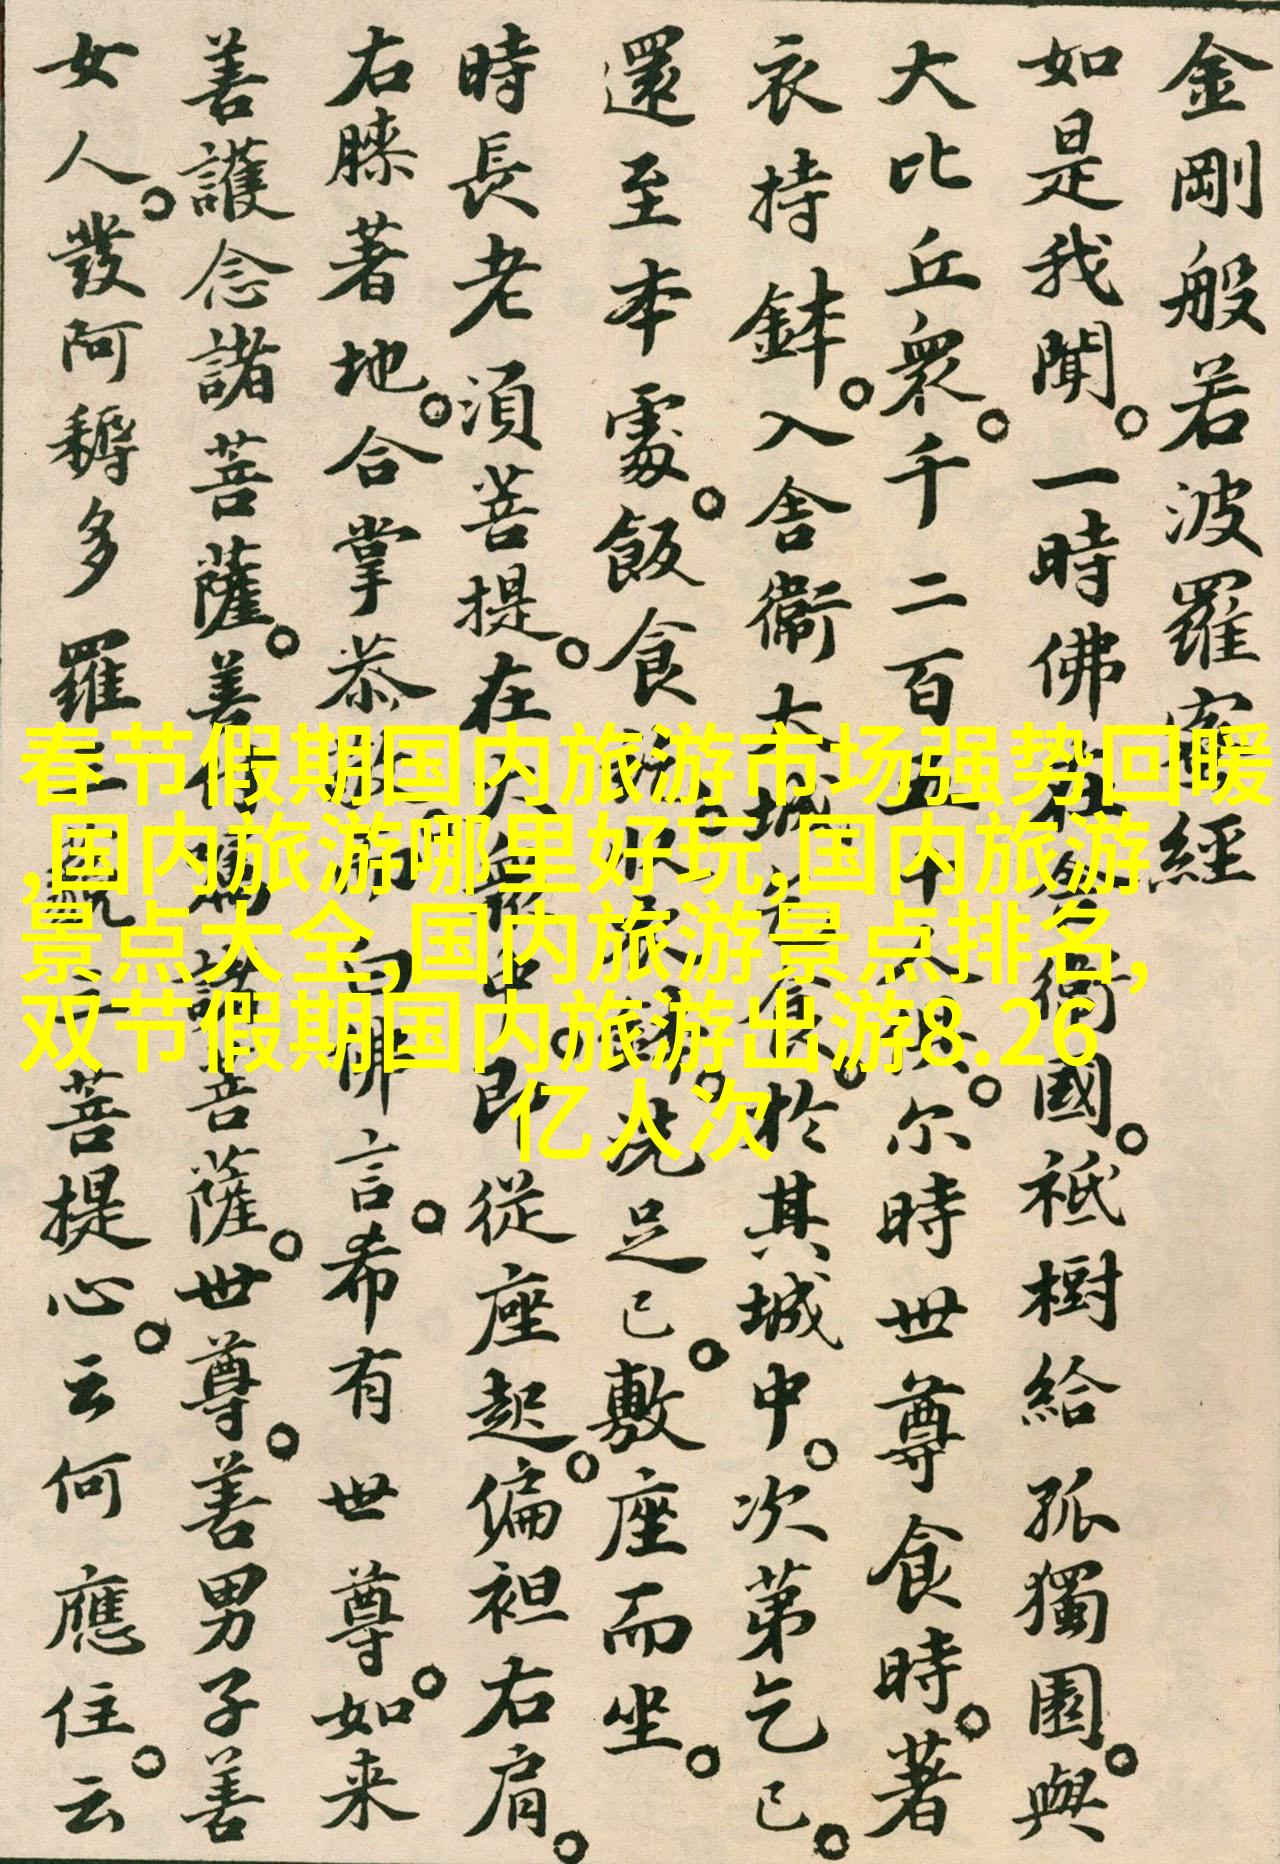 金剛般若波羅蜜經
如是我聞。一時佛在舍衛國。祇樹給孤獨園。與
大比丘衆。千二百五十人俱。尔時世尊食時。著
衣持鉢。入舍衛大城乞食。於其城中。次第乞已。
還至本處。飯食訖。收衣鉢。洗足已。敷座而坐。
時長老須菩提。在大衆中。即從座起。偏袒右肩。
右膝著地。合掌恭敬。而白佛言。希有世尊。如来
善護念諸菩薩。善付囑諸菩薩。世尊。善男子善
女人。發阿耨多羅三藐三菩提心。云何應住。云
春节假期国内旅游市场强势回暖
,国内旅游哪里好玩,国内旅游
景点大全,国内旅游景点排名,
双节假期国内旅游出游8.26
亿人次